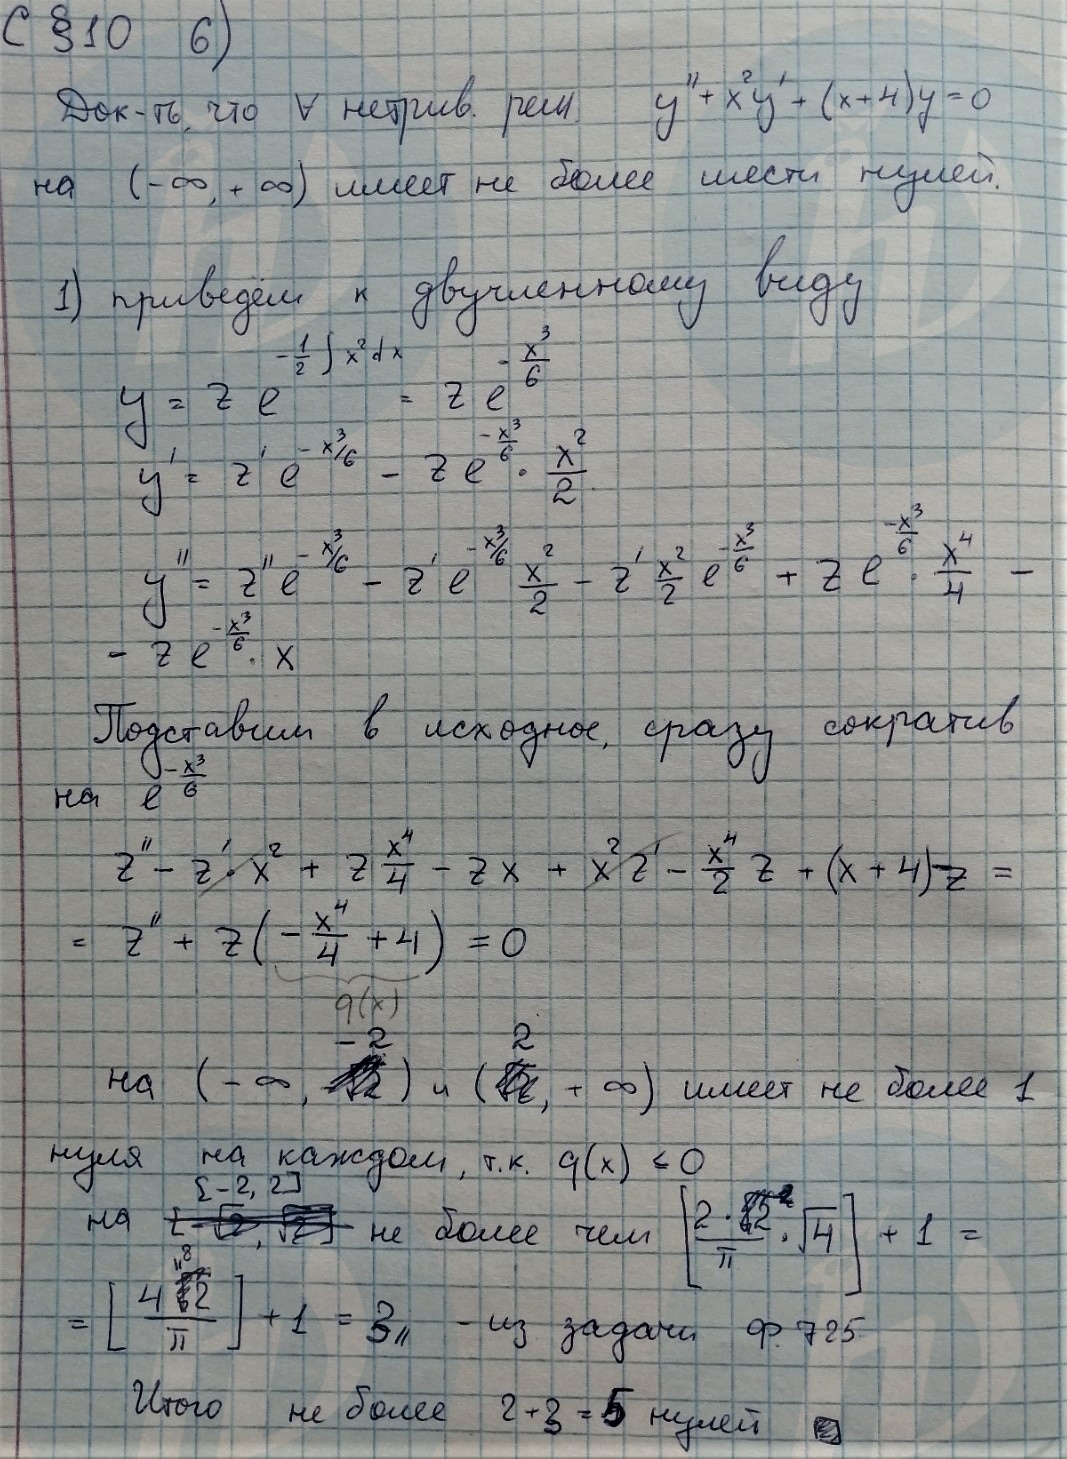 С §10 6)
Док-ть, что ∀ нетрив. реш. y'' + x²y' + (x+4)y = 0
на (-∞, +∞) имеет не более шести нулей.
1) приведём к двучленному виду
y = z e^{-\frac{1}{2}∫x²dx} = z e^{-\frac{x³}{6}}
y' = z' e^{-x³/6} - z e^{-\frac{x³}{6}} · \frac{x²}{2}
y'' = z'' e^{-x³/6} - z' e^{-x³/6} \frac{x²}{2} - z' \frac{x²}{2} e^{-\frac{x³}{6}} + z e^{-\frac{x³}{6}} · \frac{x⁴}{4} -
- z e^{-\frac{x³}{6}} · x
Подставим в исходное, сразу сократив
на e^{-\frac{x³}{6}}
z'' - z' · x² + z \frac{x⁴}{4} - zx + x²z' - \frac{x⁴}{2} z + (x+4)z =
= z'' + z(-\frac{x⁴}{4} + 4) = 0
q(x)
на (-∞, -2) и (2, +∞) имеет не более 1
нуля на каждом, т.к. q(x) ≤ 0
на [-2, 2] не более чем [\frac{2·2}{π} · √4] + 1 =
= [\frac{8}{π}] + 1 = 3,, - из задачи Ф. 725
Итого не более 2+3=5 нулей